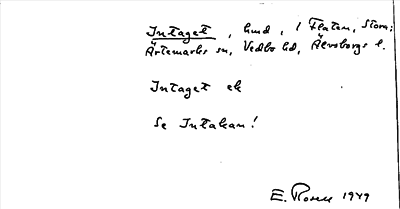 Intaget, hmd, i Flaten, Stora;
Ärtemarks sn, Vedbo hd, Älvsborgs l.
Intaget ek
Se Intakan!
E. Rosell 1949